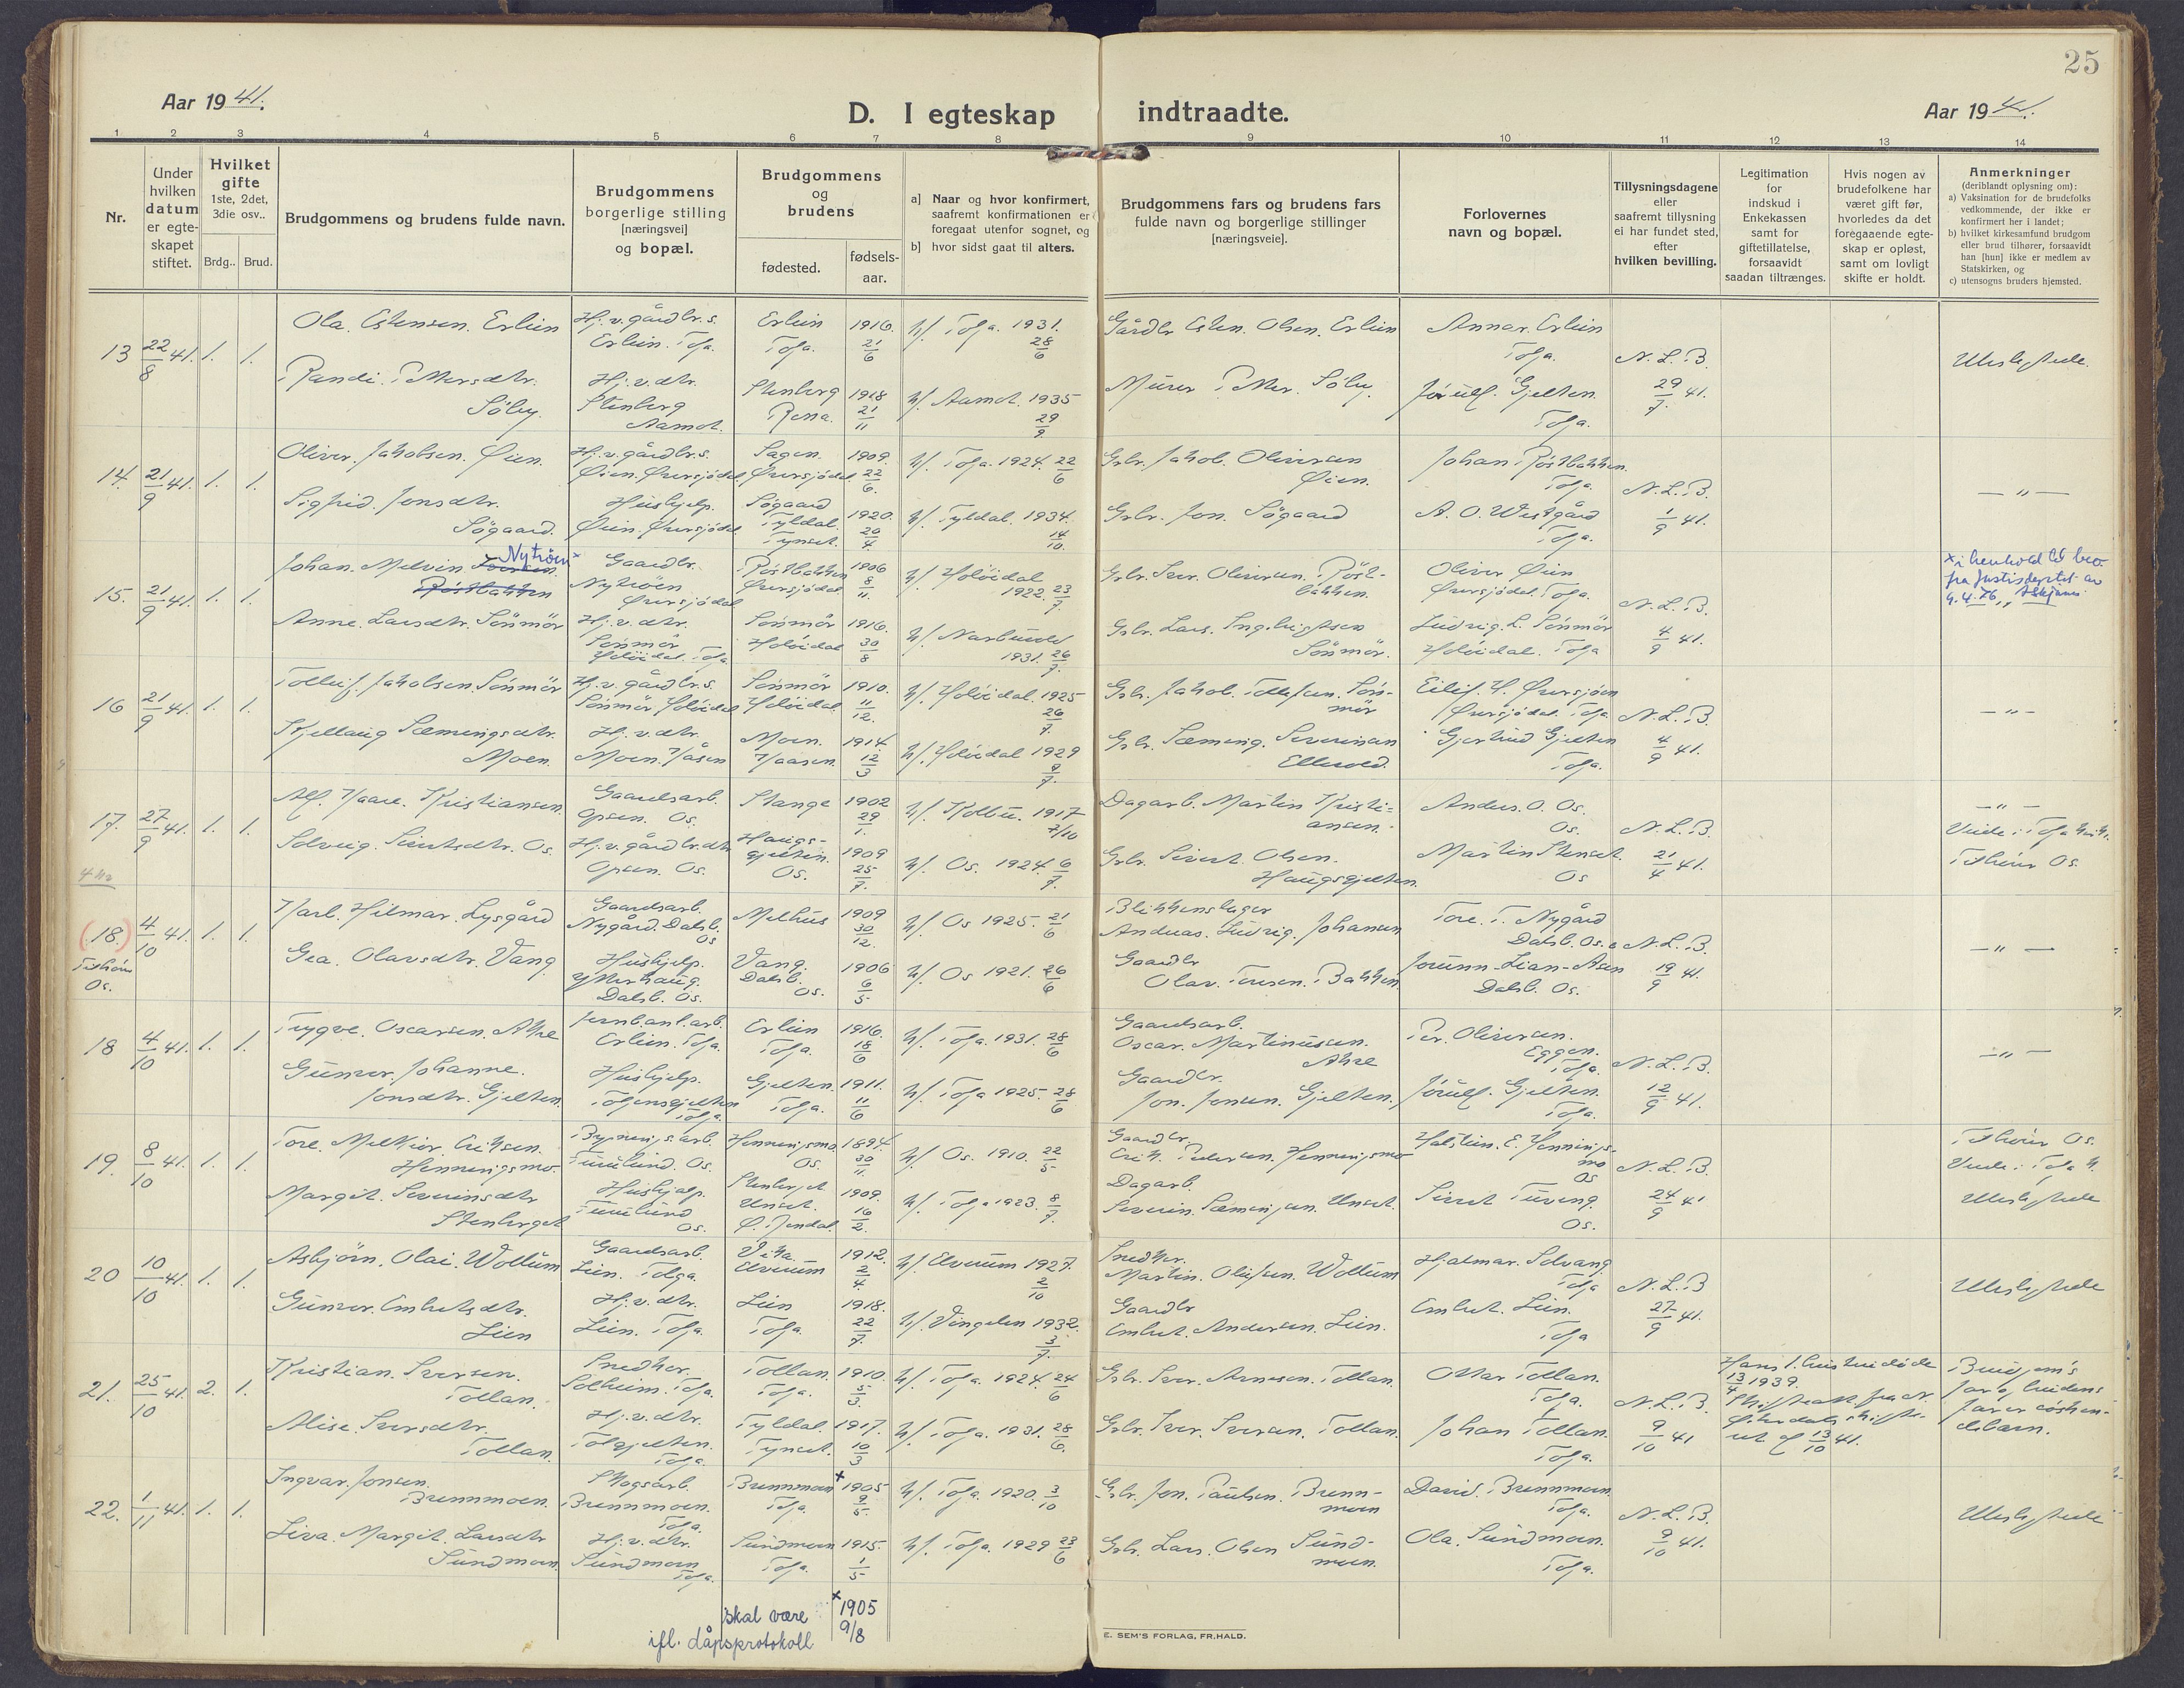 25
Aar 1941.
D. I egteskap indtraadte.
Aar 1941.
1 2 3 4 5 6 7 8 9 10 11 12 13 14
Nr.
Under hvilken datum er egte-skapet stiftet.
Hvilket gifte 1ste, 2det, 3die osv..
Brdg.. Brud.
Brudgommens og brudens fulde navn.
Brudgommens borgerlige stilling [næringsvei] og bopæl.
Brudgommens og brudens
fødested.
fødsels-aar.
a] Naar og hvor konfirmert, saafremt konfirmationen er foregaat utenfor sognet, og
b] hvor sidst gaat til alters.
Brudgommens fars og brudens fars fulde navn og borgerlige stillinger [næringsveie].
Forlovernes navn og bopæl.
Tillysningsdagene eller saafremt tillysning ei har fundet sted, efter hvilken bevilling.
Legitimation for indskud i Enkekassen samt for giftetillatelse, forsaavidt saadan tiltrænges.
Hvis nogen av brudefolkene har været gift før, hvorledes da det foregaaende egte-skap er opløst, samt om lovligt skifte er holdt.
Anmerkninger (deriblandt oplysning om):
a) Vaksination for de brudefolks vedkommende, der ikke er konfirmert her i landet;
b) hvilket kirkesamfund brudgom eller brud tilhører, forsaavidt han [hun] ikke er medlem av Statskirken, og
c) utensogns bruders hjemsted.
13 22/8 41. 1. 1. Ola Estensen Erlien Hj. v. gårdbr.s. Erlien. Tolga. Erlien Tolga. 1916. 21/6 k/. Tolga. 1931. 28/6 Gårdbr Esten Olsen Erlien Annar Erlien Tolga. N. L. B. 29/7 41.
Randi Pettersdtr. Søby. Hj. v. dtr. Stenberg Aamot. Stenberg Rena. 1918 21/11 k/. Aamot. 1935 29/9 Murer Petter Søby. Jørull Gjelten Tolga.
14. 21/9 41. 1. 1. Oliver Jakobsen Øien. Hj. v. gårdbr.s. Øien. Øversjødal. Sagen. Øversjødal. 1909. 22/6. k/. Tolga. 1924. 22/6 Grbr. Jakob Oliversen Øien. Johan Røstbakken. Tolga. N. L. B. 1/9 41. — " —
Sigfrid Jonsdtr. Søgaard. Hushjelp. Øien. Øversjødal. Søgaard Tyldal. Tynset. 1920. 20/4. k/. Tyldal. 1934. 14/10. Grbr. Jon Søgaard A. O. Vestgård Tolga.
15. 21/9 41. 1. 1. Johan Melvin Iversen Røstbakken Nytrøen x Gaardbr. Nytrøen Øversjødal Røstbakken Øversjødal 1906 8/11. k/. Holøidal 1922. 23/7. Grbr. Iver Oliversen Røst-bakken. Oliver Øien Øversjødal. Tolga. N. L. B. 4/9 41.
x i henhold til bev. fra Justisdeptet av 9.4.76,
Anne Larsdtr. Sønmør Hj. v. dtr. Sønmør Holøidal. Tolga. Sønmør Holøidal 1916. 30/8 k/. Narbuvoll 1931. 26/7. Grbr. Lars Ingebrigtsen Sønmør. Ludvig L. Sønmør Holøidal. Tolga
16 21/9 41. 1. 1. Tollef Jakobsen Sønmør Hj. v. gårdbr.s. Sønmør Holøidal Sønmør Holøidal. 1910. 11/12. k/. Holøidal. 1925 26/7 Grbr. Jakob Tollefsen Søn-mør Eilif H. Øversjøen Øversjødal. Tolga N. L. B. 4/9 41. — " —
Kjellaug Sæmingsdtr. Moen. Hj. v. dtr. Moen. Håsen Moen. Haasen. 1914. 12/3 k/. Holøidal 1929 9/7. Grbr. Sæming Severinsen Ellevold. Gjertrud Gjelten Tolga.
17. 27/9 41. 1. 1. Alf Haare Kristiansen. Gaardsarb. Opsen. Os. Stange 1902 29/1. k/. Kolbu. 1917 7/10 Dagarb. Martin Kristi-ansen. Anders O. Os. Os. N. L. B. 21/4 41. — " —
Solveig Sivertsdtr. Os. Hj. v. gårdbr. dtr Opsen. Os. Haugs-gjelten. Os. 1909 25/7. k/. Os. 1924. 6/7. Grbr. Sivert Olsen Haugsgjelten. Martin Stenset. Os Viede i Tolga kirke. Tilhører Os.
(18.) Tilhører Os. 4/10 41. 1. 1. Harl. Hilmar Lysgård Gaardsarb. Nygård. Dalsb. Os Melhus 1909 30/12. k/. Os 1925. 21/6 Blikkenslager Andreas Ludvig Johansen Tore T. Nygård Dalsb. Os. N. L. B. 19/9 41. — " —
Gea Olavsdtr. Vang. Hushjelp. Ytterhaug. Dalsb. Os. Vang. Dalsb. Os. 1906 6/5 k/. Os 1921. 26/6 Gaardbr Olav Toresen Bakken Jorunn Lian-Aasen Dalsb. Os.
18 4/10 41. 1. 1. Trygve Oscarsen Akre Jernb.anl.arb. Erlien. Tolga. Erlien Tolga. 1916. 18/6 k/. Tolga. 1931. 28/6 Gaardsarb. Oscar Martinussen Akre Per Oliversen Eggen. Tolga. N. L. B. 12/9 41. — " —
Gunvor Johanne Jonsdtr. Gjelten. Hushjelp. Tolgensgjelten Tolga. Gjelten. Tolga. 1911. 11/6 k/. Tolga 1925. 28/6 Gaardbr. Jon Jonsen Gjelten. Jørull Gjelten. Tolga.
19. 8/10 41. 1. 1. Tore Melkior Eriksen Henningsmo. Bygnings.arb. Furulund. Os. Henningsmo. Os. 1894. 30/11. k/. Os. 1910. 22/5. Gaardbr. Erik Pedersen Henningsmo Halstein E. Hennings-mo Os N. L. B. 24/9 41 Tilhører Os. Viede i Tolga k.
Margit Severinsdtr Stenberget Hushjelp. Furulund Os. Stenberget Unset. Ø. Rendal. 1909. 16/2. k/. Tolga 1923. 8/7. Dagarb. Severin Sæmingsen Unset. Sivert Tuveng. Os.
20 10/10 41. 1. 1. Asbjørn Olai Wollum Gaardsarb. Lien. Tolga. Elverum 1912. 2/4. k/. Elverum 1927. 2/10 Snedker. Martin Olufsen Wollum Hjalmar Solvang Tolga N. L. B 27/9 41.
Gunvor Embretsdtr. Lien Hj. v. dtr. Lien. Tolga. Lien Tolga. 1918. 22/7. k/. Vingelen 1932. 3/7. Gaardbr Embret Andersen Lien. Embret Lien. Tolga
21. 25/10 41. 2. 1. Kristian Iversen Tollan. Snedker. Solheim. Tolga. Tollan. Tolga. 1910. 5/3. k/. Tolga. 1924. 24/6 Grbr. Iver Arnesen Tollan. Ottar Tollan. Tolga. N. L. B. 9/10 41 Hans 1. hustru døde 13/4 1939. Skifteatt. fra N. Østerdals skifte-rett af 13/10 41. Brudgom's far og brudens far er søsken-debarn.
Alise Iversdtr. Tollan. Hj. v. dtr. Tolgjelten. Tolga. Tyldal. Tynset. 1917. 10/3 k/. Tolga. 1931. 28/6. Grbr. Iver Iversen Tollan. Johan Tollan. Tolga.
22. 1/11 41. 1. 1. Ingvar Jonsen Brennmoen. Skogsarb. Brennmoen. Tolga. Brennmoen Tolga x 1905 9/5. k/. Tolga. 1920. 3/10 Grbr. Jon Paulsen Brenn-moen David Brennmoen. Tolga. N. L. B. 9/10 41.
Liva Margit Larsdtr Sundmoen. Hj. v. dtr. Sundmoen Tolga. Sundmoen Tolga. 1915. 1/5 k/. Tolga. 1929 23/6 Grbr. Lars Olsen Sund-moen. Ola Sundmoen. Tolga.
skal være ifl. dåpsprotokoll x 1905 9/8
E. SEM'S FORLAG, FR.HALD.